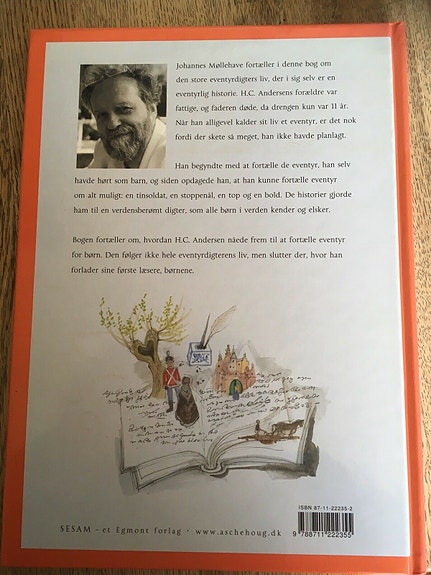 Johannes Møllehave fortæller i denne bog om
den store eventyrdigters liv, der i sig selv er en
eventyrlig historie. H.C. Andersens forældre var
fattige, og faderen døde, da drengen kun var 11 år.
Når han alligevel kalder sit liv et eventyr, er det nok
fordi der skete så meget, han ikke havde planlagt.
Han begyndte med at fortælle de eventyr, han selv
havde hørt som barn, og siden opdagede han, at han kunne fortælle eventyr
om alt muligt: en tinsoldat, en stoppenål, en top og en bold. De historier gjorde
ham til en verdensberømt digter, som alle børn i verden kender og elsker.
Bogen fortæller om, hvordan H.C. Andersen nåede frem til at fortælle eventyr
for børn. Den følger ikke hele eventyrdigterens liv, men slutter der, hvor han
forlader sine første læsere, børnene.
ISBN 87-11-22235-2
9 788711 222355
SESAM – et Egmont forlag • www.aschehoug.dk